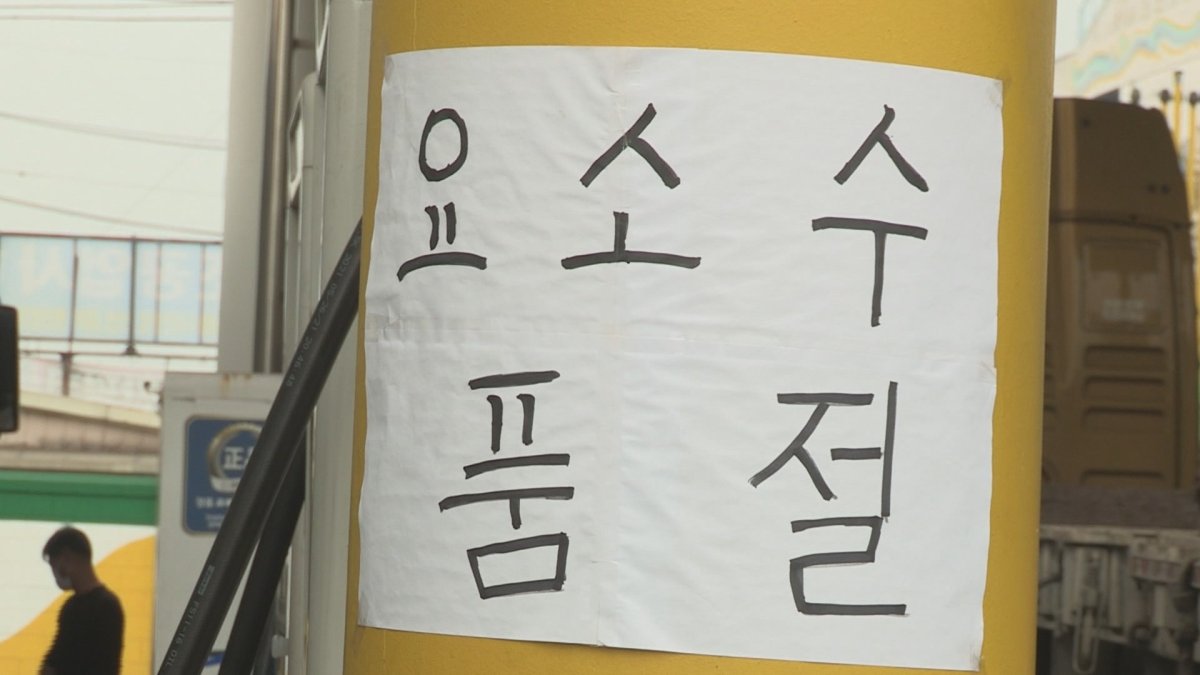 요소수
품절
正